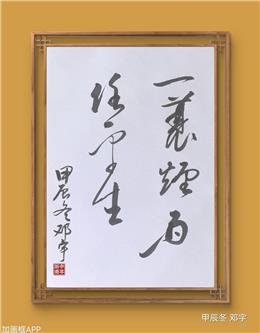 一蓑煙雨
任平生
甲辰冬邓宇
甲辰冬 邓宇
加画框APP